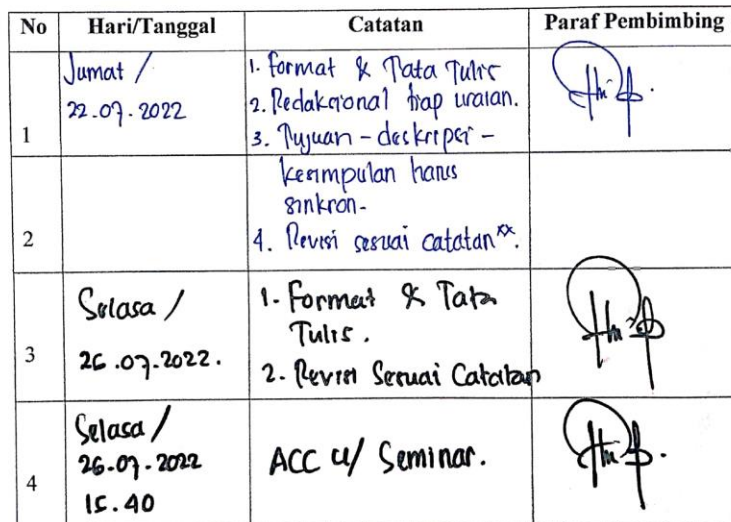 No Hari/Tanggal Catatan Paraf Pembimbing
1 Jumat /
22.07.2022
1. Format & Tata Tulis
2. Redaksional tiap uraian.
3. Tujuan - deskripsi -
2 kesimpulan harus
sinkron-
4. Revisi sesuai catatan**.
3 Selasa /
26.07.2022.
1. Format & Tata
Tulis.
2. Revisi Sesuai Catatan
4 Selasa /
26.07.2022
15.40
ACC u/ Seminar.